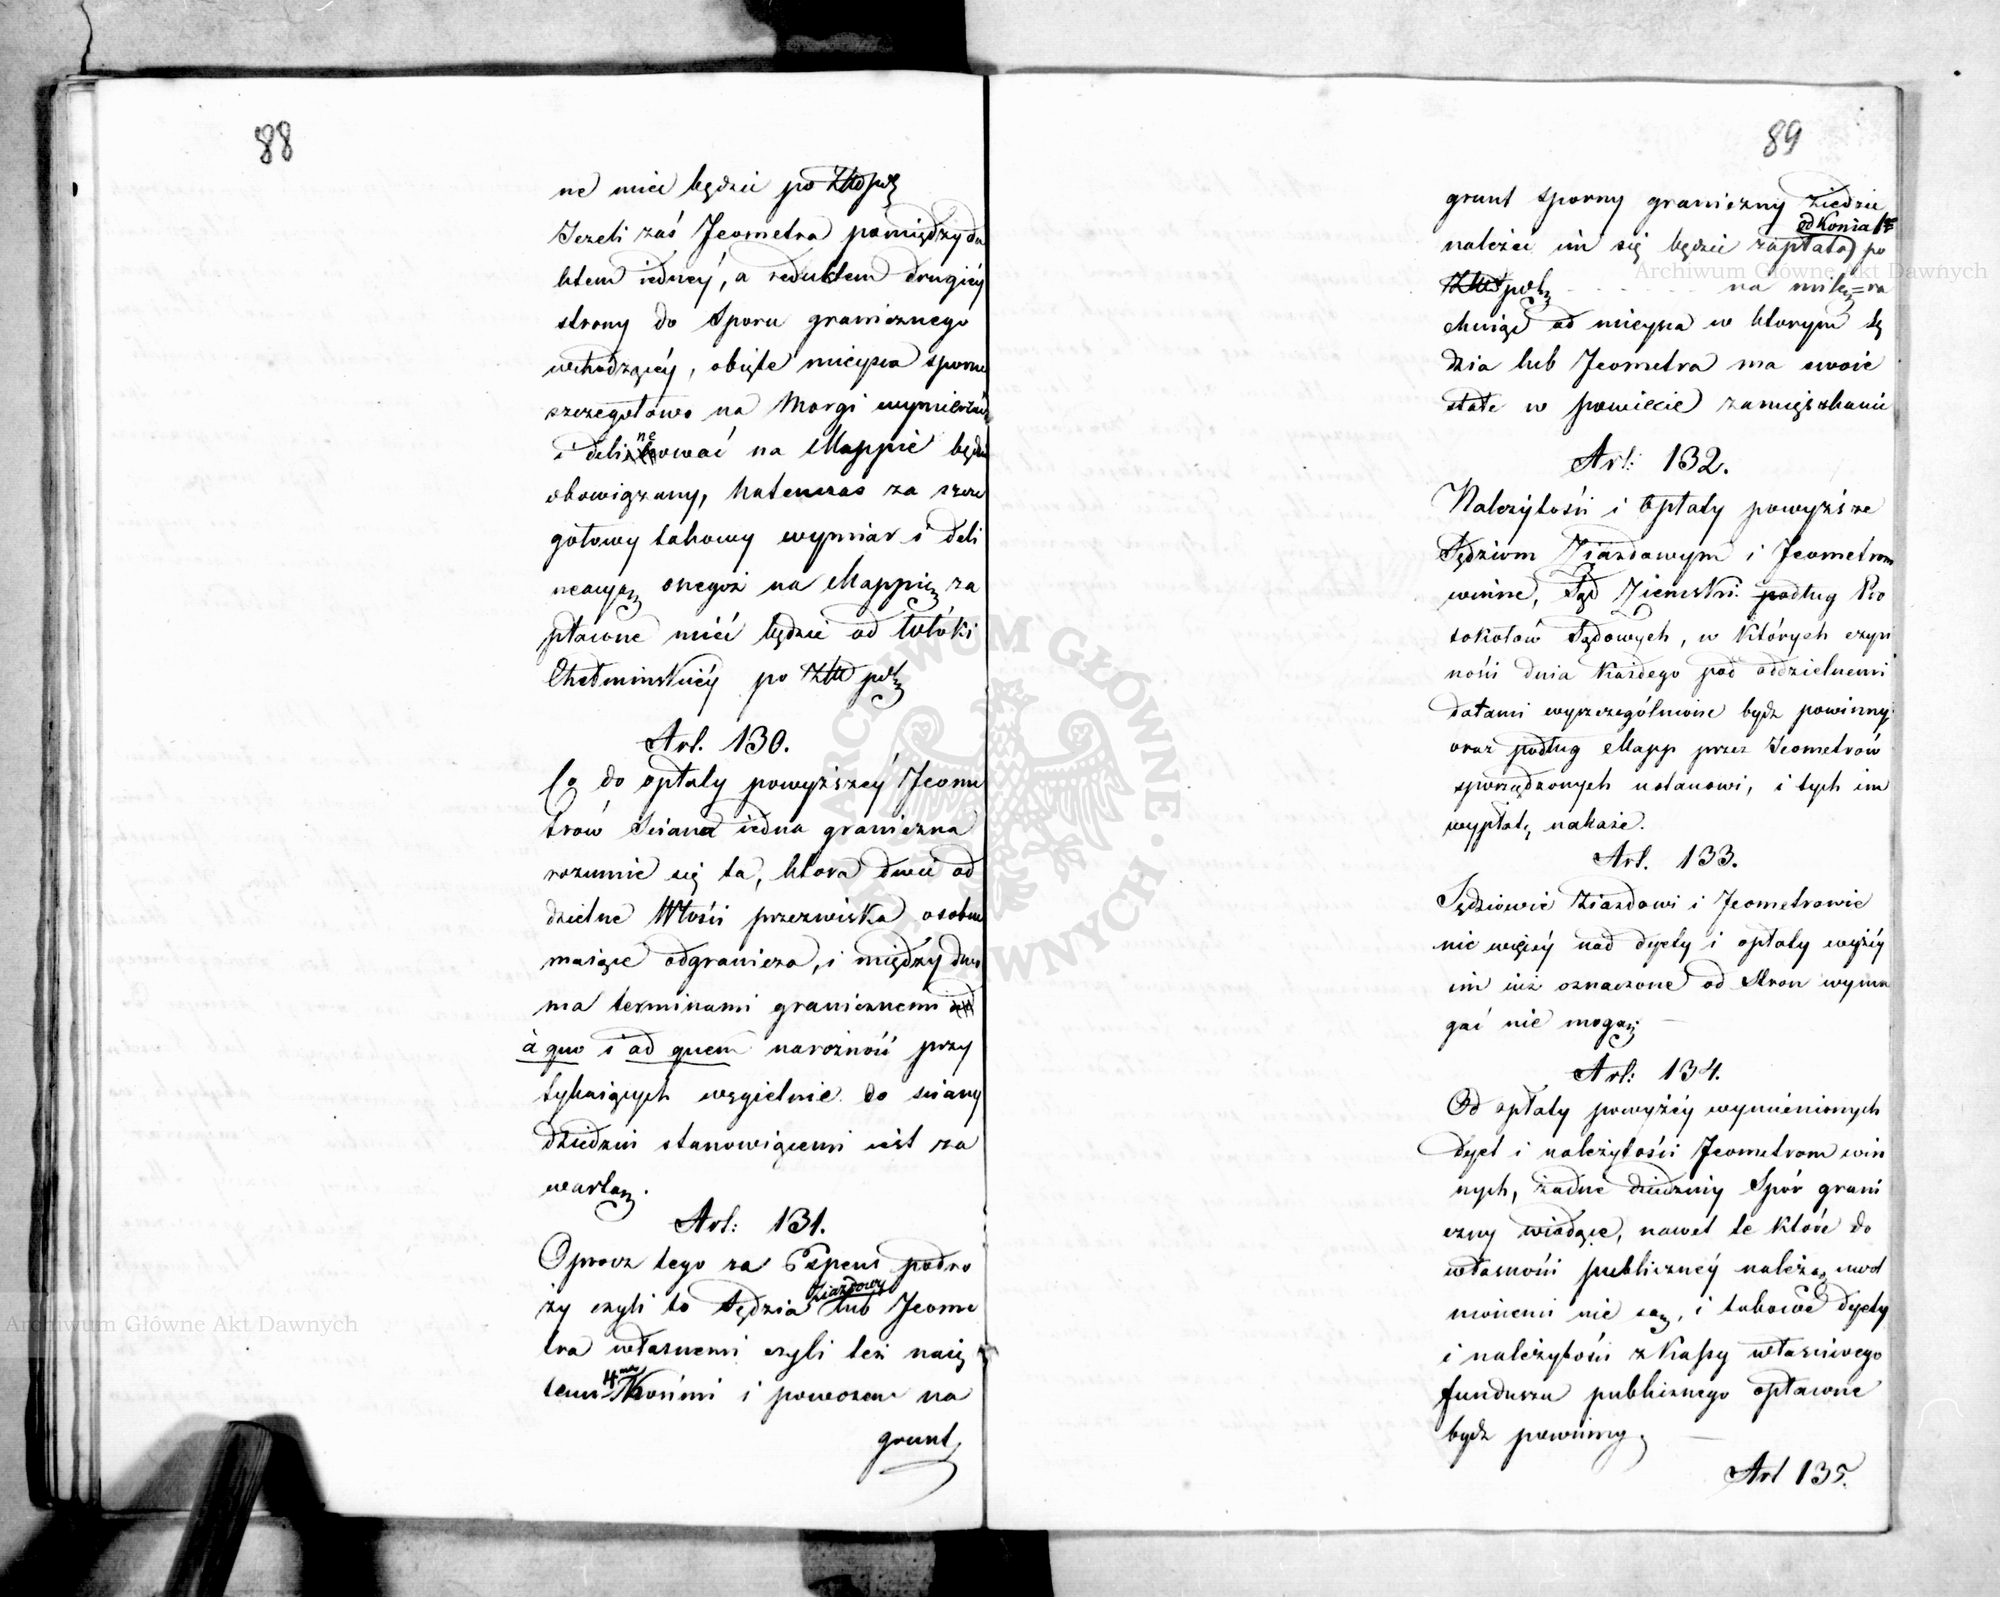 88
ne mieć będzie po Złło pol:
Jeżeli zaś Jeometra pomiędzy du
ktem iedney, a reduktem drugiéy
strony do Sporu granicznego
wchodzącéy, obięte mieysca sporne
szczegułowo na Morgi wymierzać
i delineować na Mappie będzie
obowiązany, natenczas za szcze
gółowy takowy wymiar i deli
neacyą onegoż na Mappie za
płacone mieć będzie od Włóki
Chełminskiéy po Złł pol:
Art. 130.
Co do opłaty powyższéy Jeome
trów Sciana iedna graniczna
rozumie się ta, która dwie od
dzielne Włości przezwiska osobne
maiące odgranicza, i między dwo
ma terminami granicznemi
à quo i ad quem narożność przy
tykaiących węgielnie do sciany
dziedzin stanowiącemi iest za
warta.
Art: 131.
Oprocz tego za Expens podro
ży czyli to Sędzia Ziazdowy lub Jeome
tra własnemi czyli też naię
temi 4ma Końmi i powozem na
grunt
89
grunt sporny graniczny ziedzie
od Konia 1go
należeć im się będzie zapłata po
Złł pol: na milę ra
chuiąc od mieysca w ktorym Sę
dzia lub Jeometra ma swoie
stałe w powiecie zamięszkanie
Art: 132.
Należytości i Opłaty powyższe
Sędziom Ziazdowym i Jeometrom
winne, Sąd Ziemski podług Pro
tokołów Sądowych, w których czyn
ności dnia Każdego pod oddzielnemi
datami wyszczególnione bydz powinny
oraz podług Mapp przez Jeometrów
sporządzonych ustanowi, i tych im
wypłatę nakaże.
Art. 133.
Sędziowie Ziazdowi i Jeometrowie
nic więcéy nad dyety i opłaty wyżéy
im iuż oznaczone od Stron wyma
gać nie mogą.
Art: 134.
Od opłaty powyżéy wymienionych
dyet i należytości Jeometrom win
nych, żadne dziedziny Spór grani
czny wiodące, nawet te które do
własności publicznéy należą, uwol
nionemi nie są, i takowe dyety
i należytości z Kassy własciwego
funduszu publicznego opłacone
bydz powinny.
Art 135.
Archiwum Główne Akt Dawnych
Archiwum Główne Akt Dawnych
ARCHIWUM GŁÓWNE AKT DAWNYCH